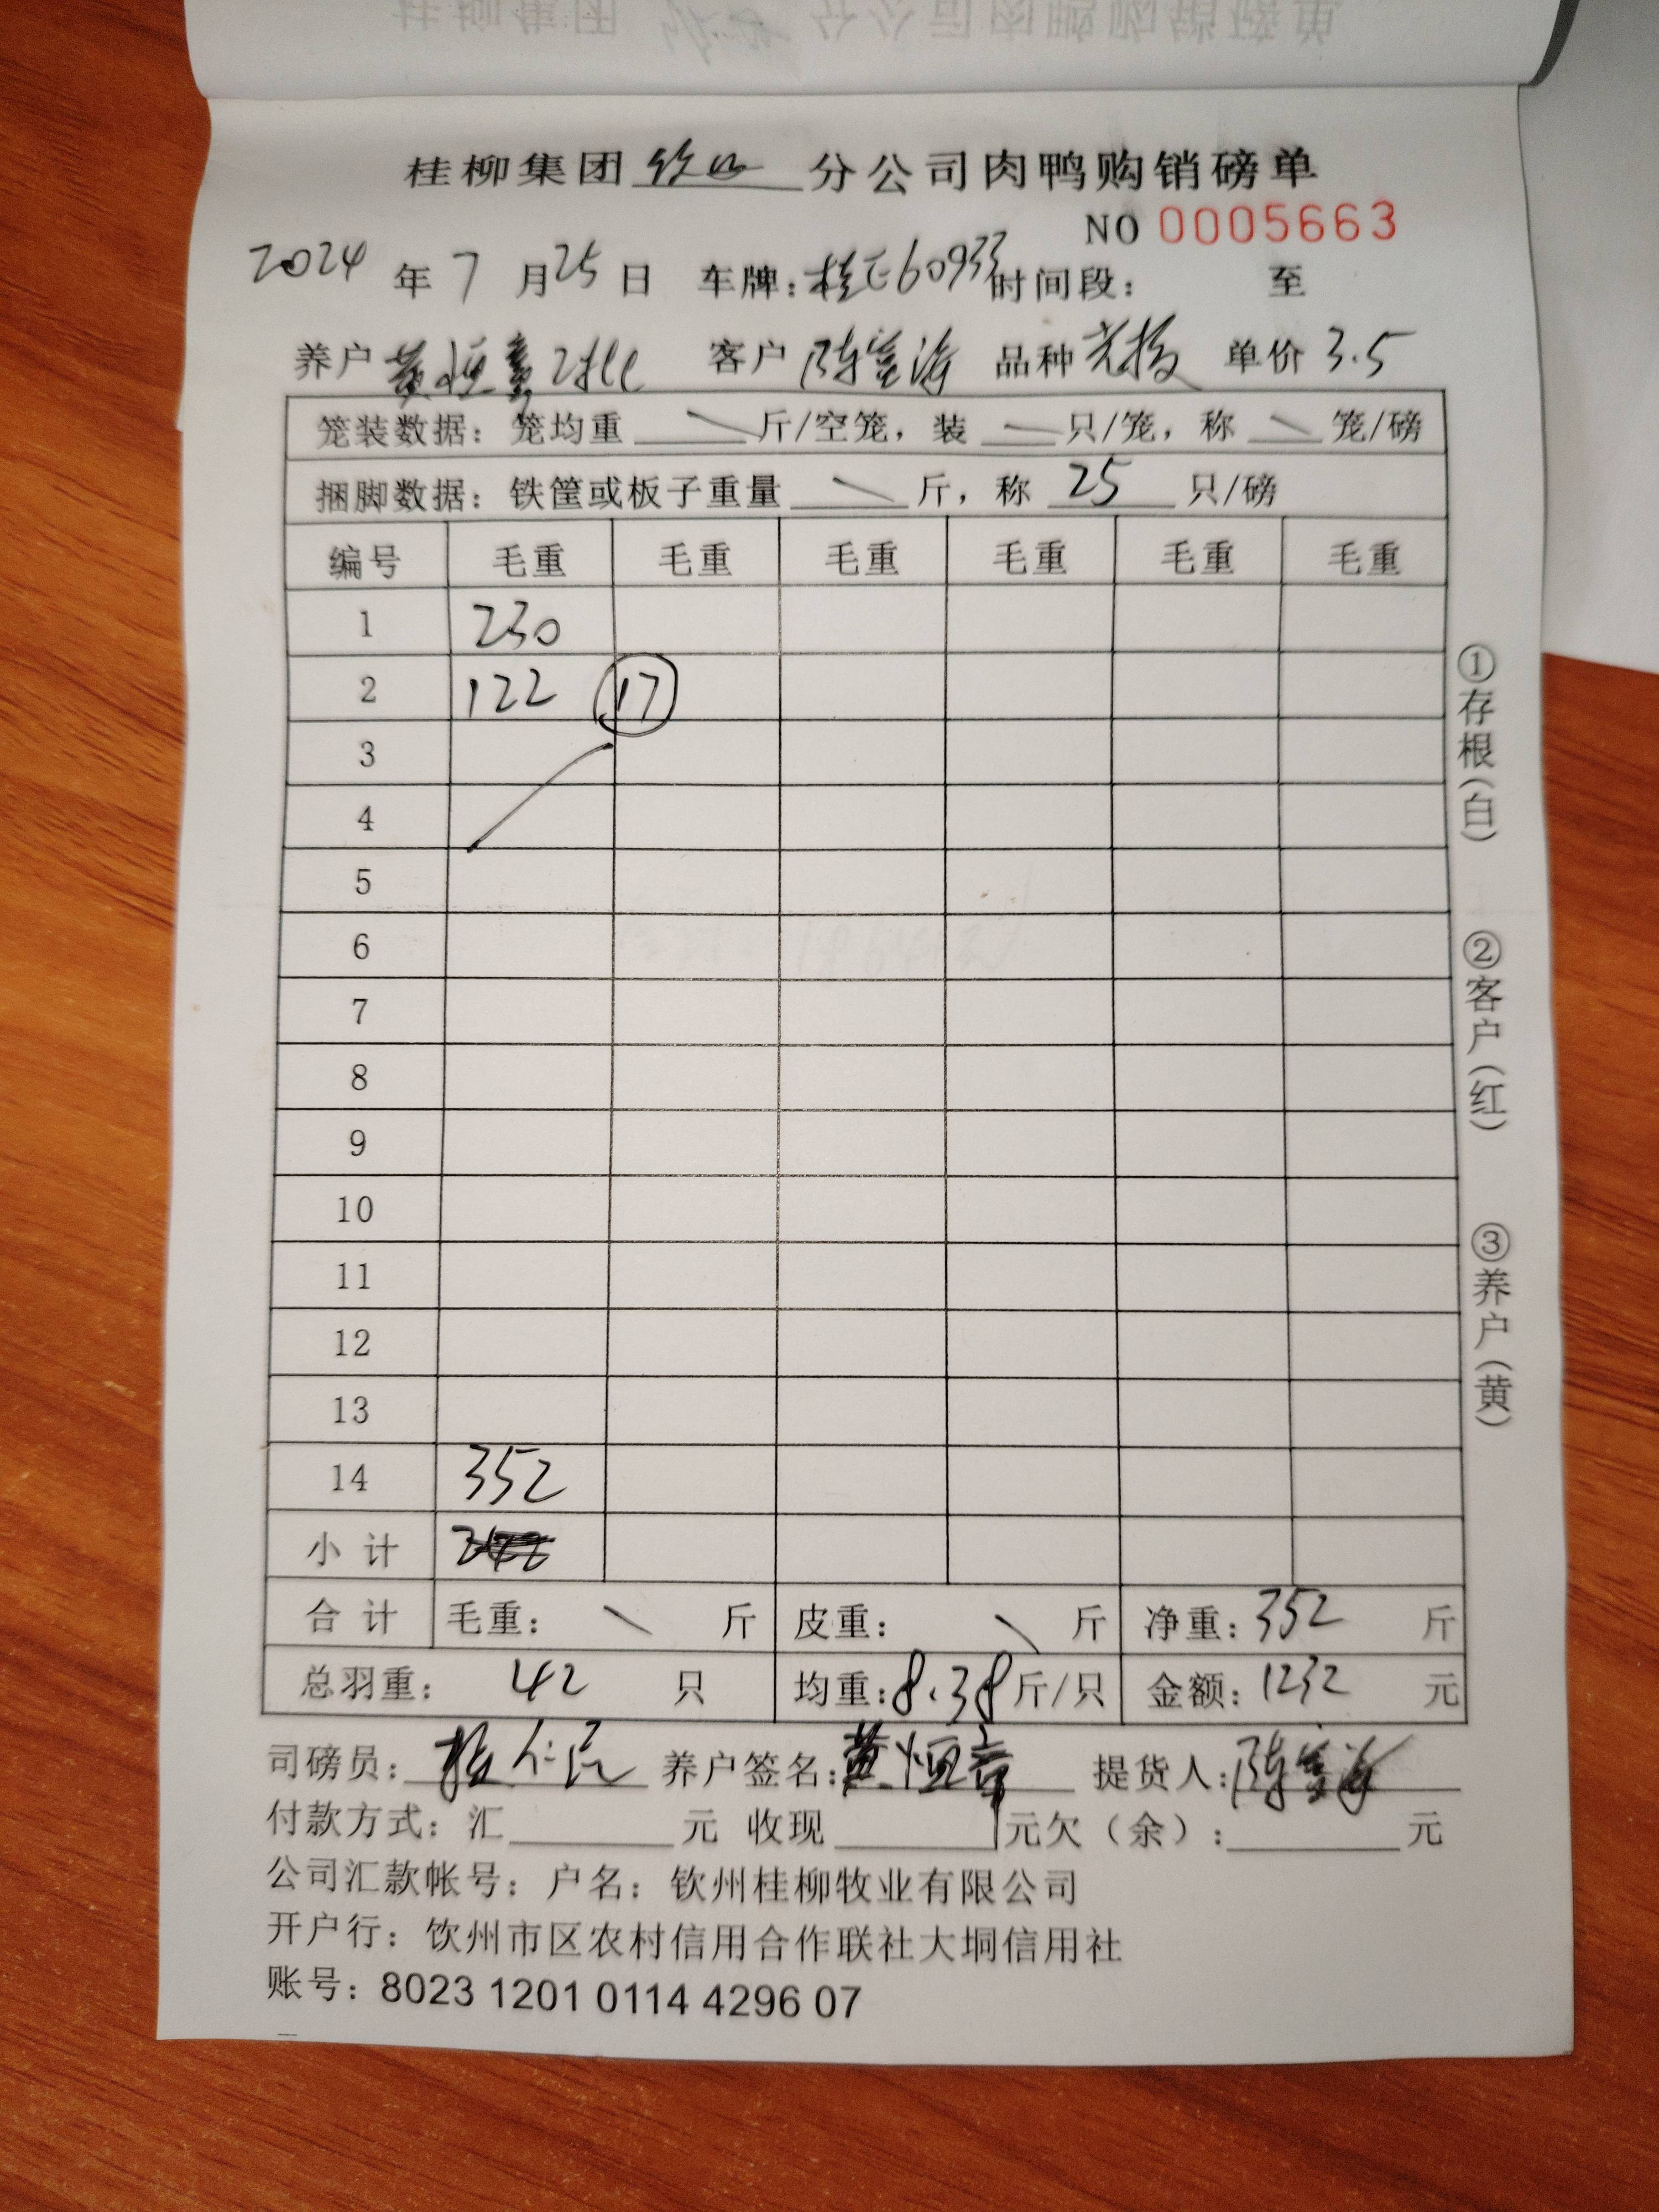 桂柳集团 钦州 分公司肉鸭购销磅单
NO 0005663
2024 年 7 月 25 日 车牌: 桂E60933 时间段: 至
养户 黄恒章 2批 客户 陈富海 品种 单价 3.5
笼装数据: 笼均重 \ 斤/空笼, 装 \ 只/笼, 称 \ 笼/磅
捆脚数据: 铁筐或板子重量 \ 斤, 称 25 只/磅
编号 毛重 毛重 毛重 毛重 毛重 毛重
1 230
2 122 17
3
4
5
6
7
8
9
10
11
12
13
14 352
小计
合计 毛重: \ 斤 皮重: \ 斤 净重: 352 斤
总羽重: 42 只 均重: 8.38 斤/只 金额: 1232 元
司磅员: 养户签名: 黄恒章 提货人: 陈富海
付款方式: 汇 元 收现 元欠(余): 元
公司汇款帐号: 户名: 钦州桂柳牧业有限公司
开户行: 钦州市区农村信用合作联社大垌信用社
账号: 8023 1201 0114 4296 07
①存根(白)
②客户(红)
③养户(黄)